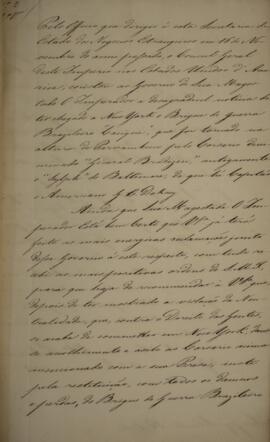 Pelo Officio que dirigio á esta Secretaria de
Estado dos Negocios Estrangeiros em 16 de No-
vembro do anno passado, o Consul Geral
deste Imperio nos Estados Unidos d'Ame-
rica, constou ao Governo de Sua Mages-
tade O Imperador a desagradavel noticia de
ter chegado a New York o Brigue de guerra
Brazileiro Cacique, que foi tomado na
altura de Pernambuco pelo Corsario deno-
minado "General Brandzen", antigamente
o "Sylph" de Baltimore, de que he Capitão
o Americano
Ainda que Sua Magestade O Im-
perador Está bem Certo que VMce já terá
feito as mais energicas reclamações junto
desse Governo á este respeito, com tudo re-
cebi as mais positivas ordens de S. M. I.
para que haja de recommendar a VMce que,
depois de ter mostrado a violação da Neu-
tralidade que, contra o Direito das Gentes,
se acaba de commetter em New York, dan-
do-se acolhimento e asilo ao Corsario acima
mencionado com a sua Preza, inste
pela restituição, com todos os damnos
e perdas, do Brigue de Guerra Brazileiro